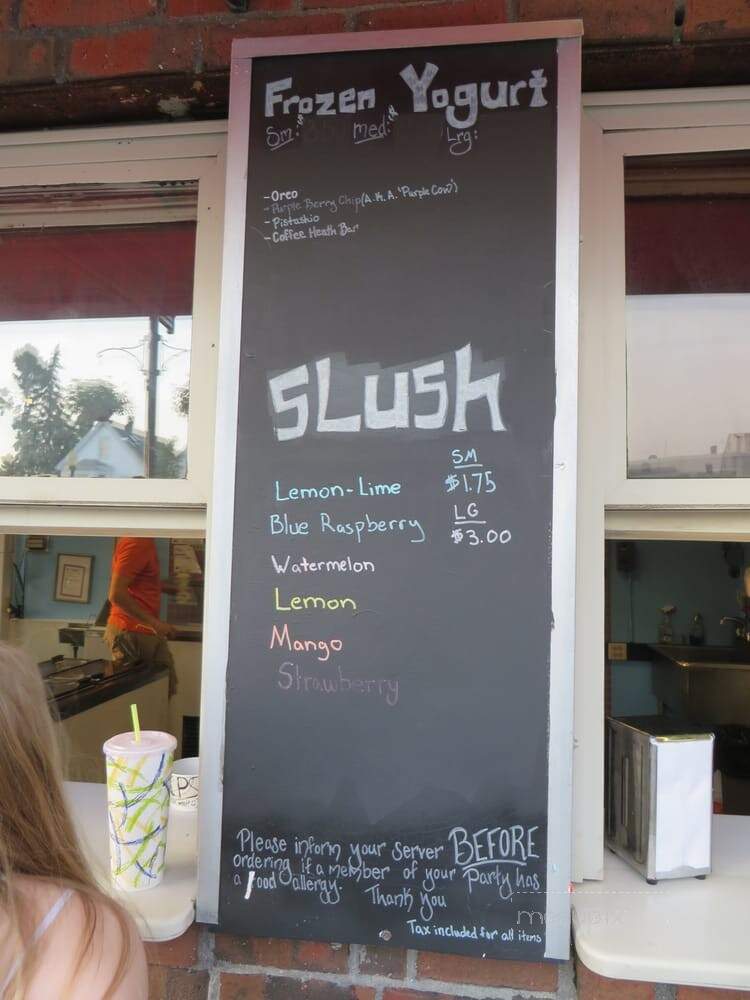 Frozen Yogurt
Sm:$ med:$ Lrg:
-Oreo
-Purple Berry Chip (A.K.A. "Purple Cow")
-Pistashio
-Coffee Heath Bar
SLUSH
SM
Lemon-Lime $1.75
Blue Raspberry LG
$3.00
Watermelon
Lemon
Mango
Strawberry
Please inform your server BEFORE
ordering if a member of your Party has
a food allergy. Thank you
Tax included for all items
PS